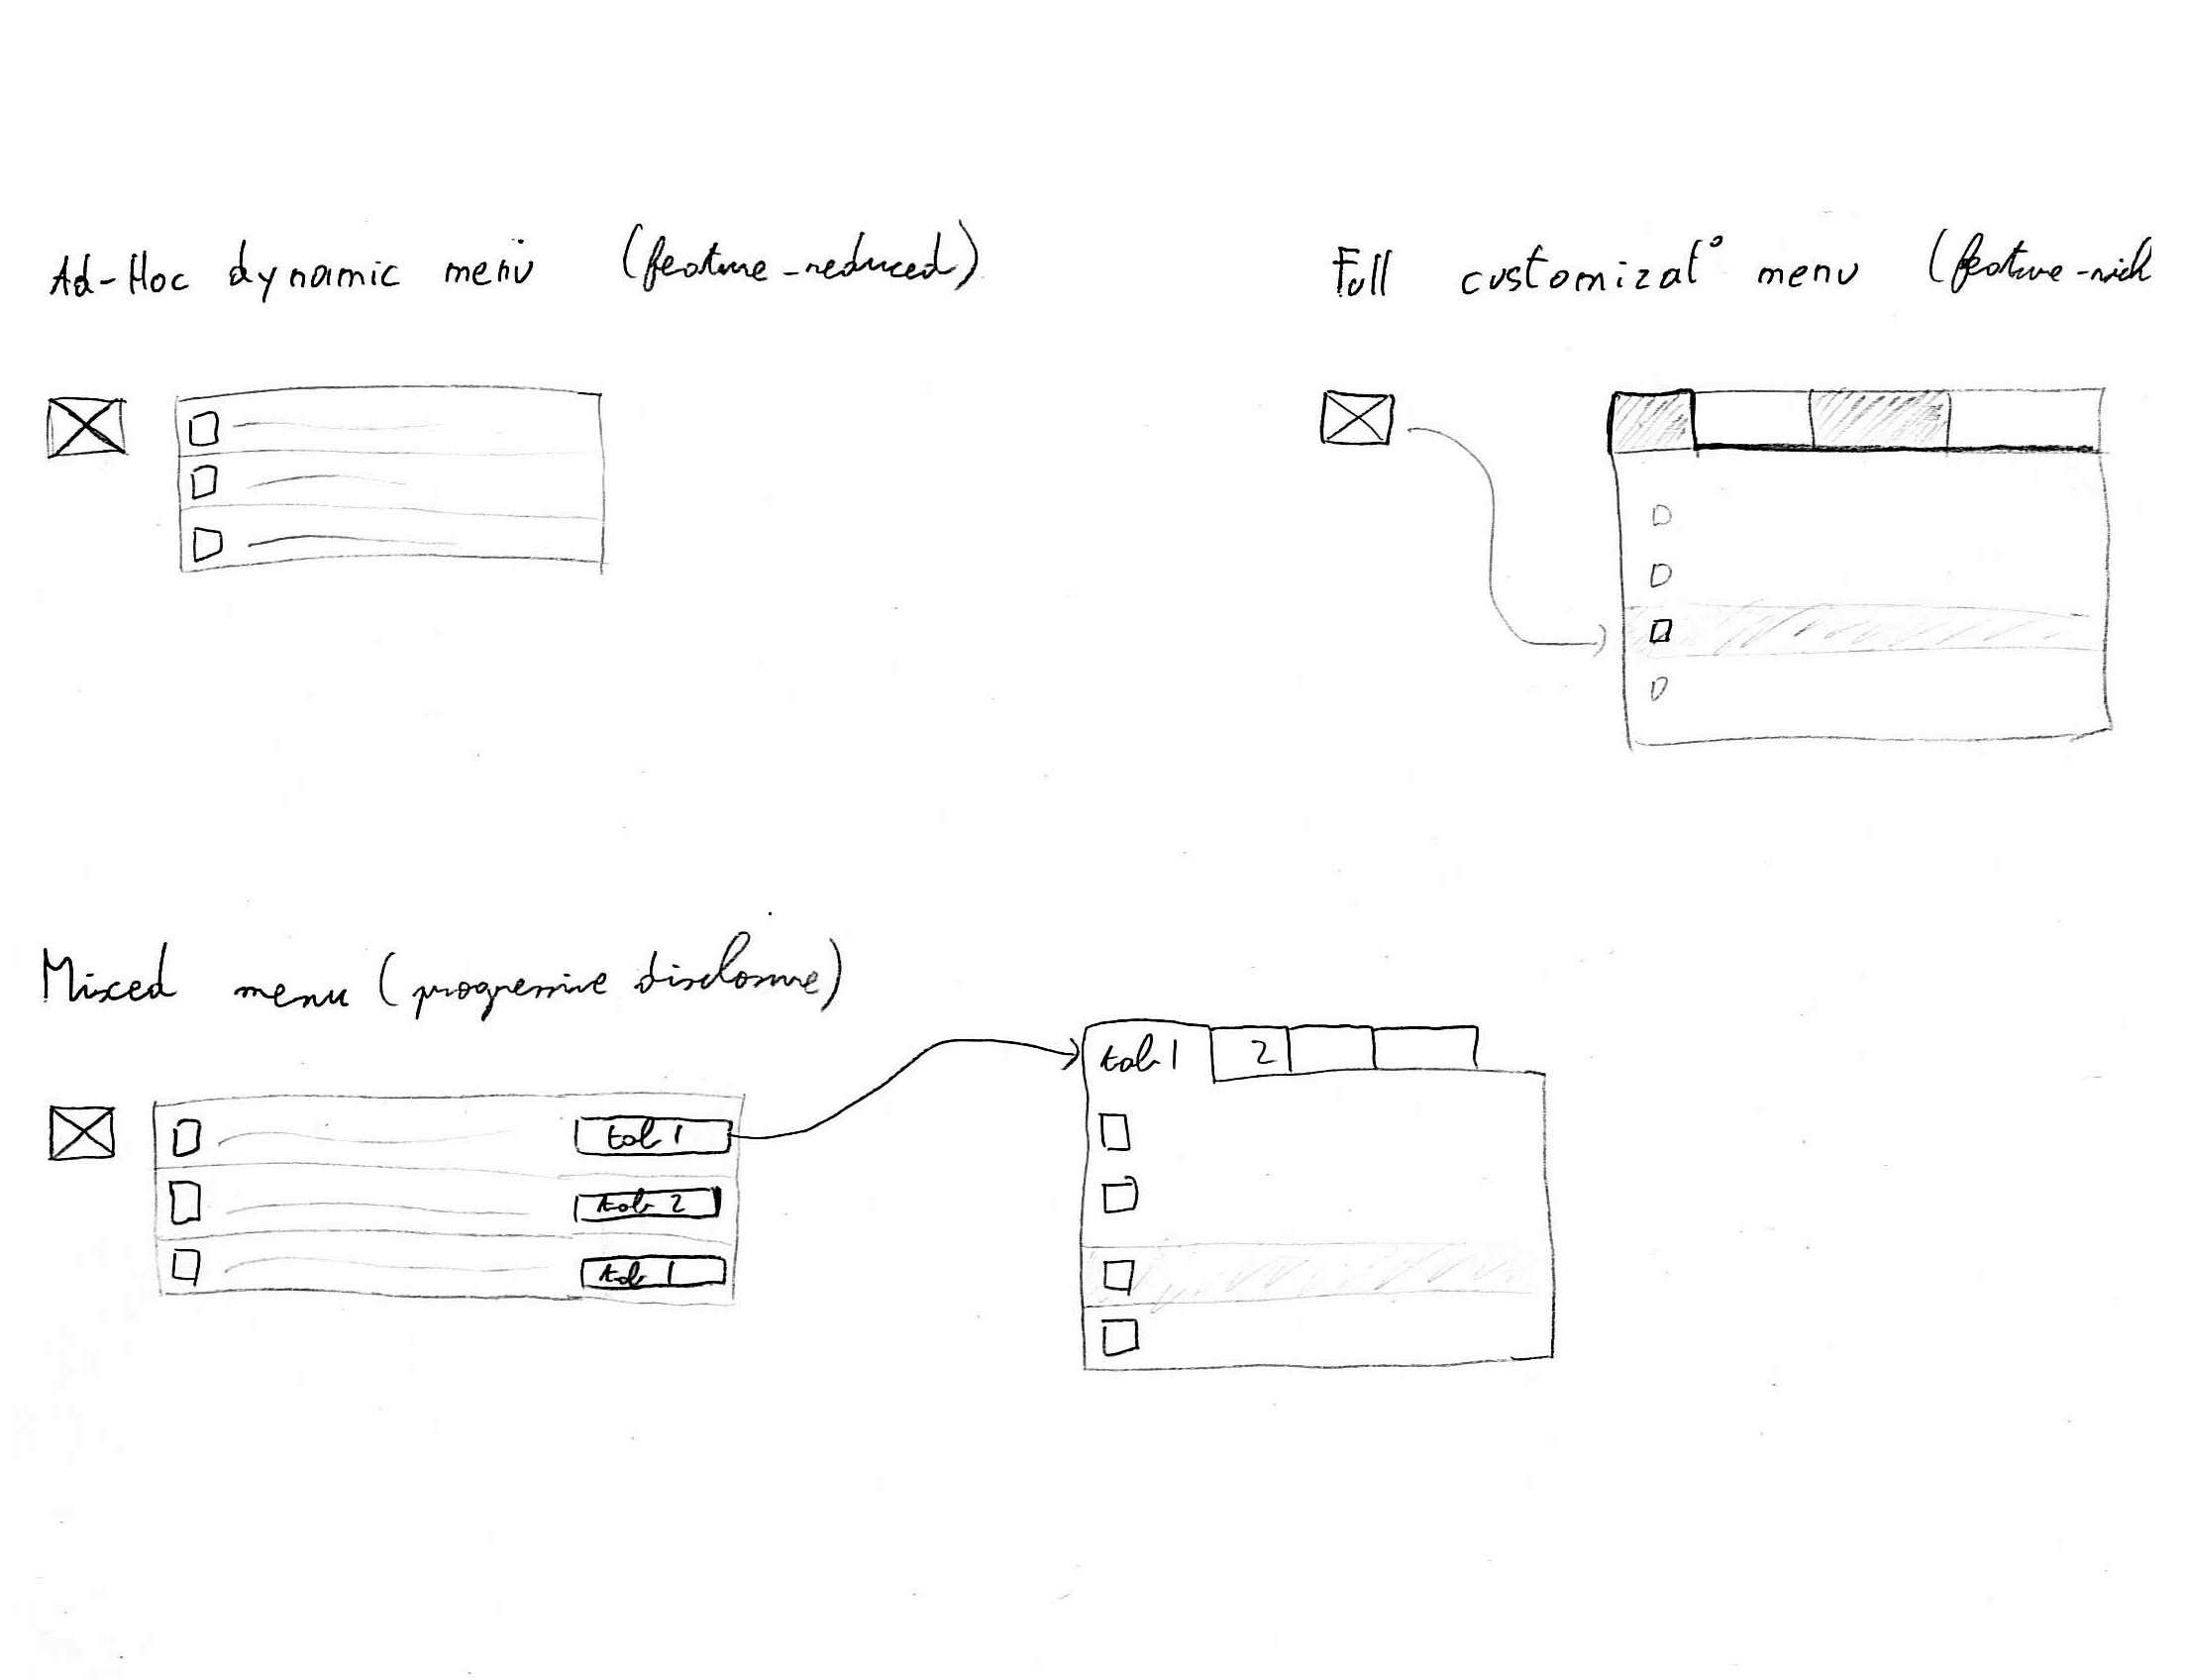 Ad-Hoc dynamic menu (feature-reduced)
Full customizat° menu (feature-rich
Mixed menu (progressive disclosure)
tab 1
tab 2
tab 1
tab 1 2